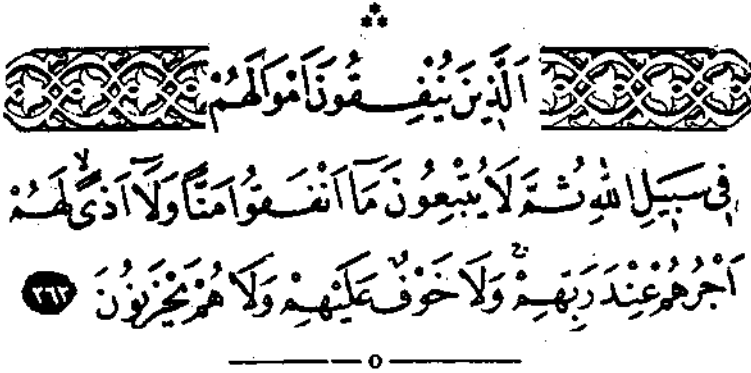 اَلَّذِينَ يُنْفِقُونَ اَمْوَالَهُمْ
فِي سَبِيلِ اللّٰهِ ثُمَّ لَا يُتْبِعُونَ مَٓا اَنْفَقُوا مَنًّا وَلَٓا اَذًىۙ لَهُمْ
اَجْرُهُمْ عِنْدَ رَبِّهِمْۚ وَلَا خَوْفٌ عَلَيْهِمْ وَلَا هُمْ يَحْزَنُونَ ﴿٢٦٢﴾